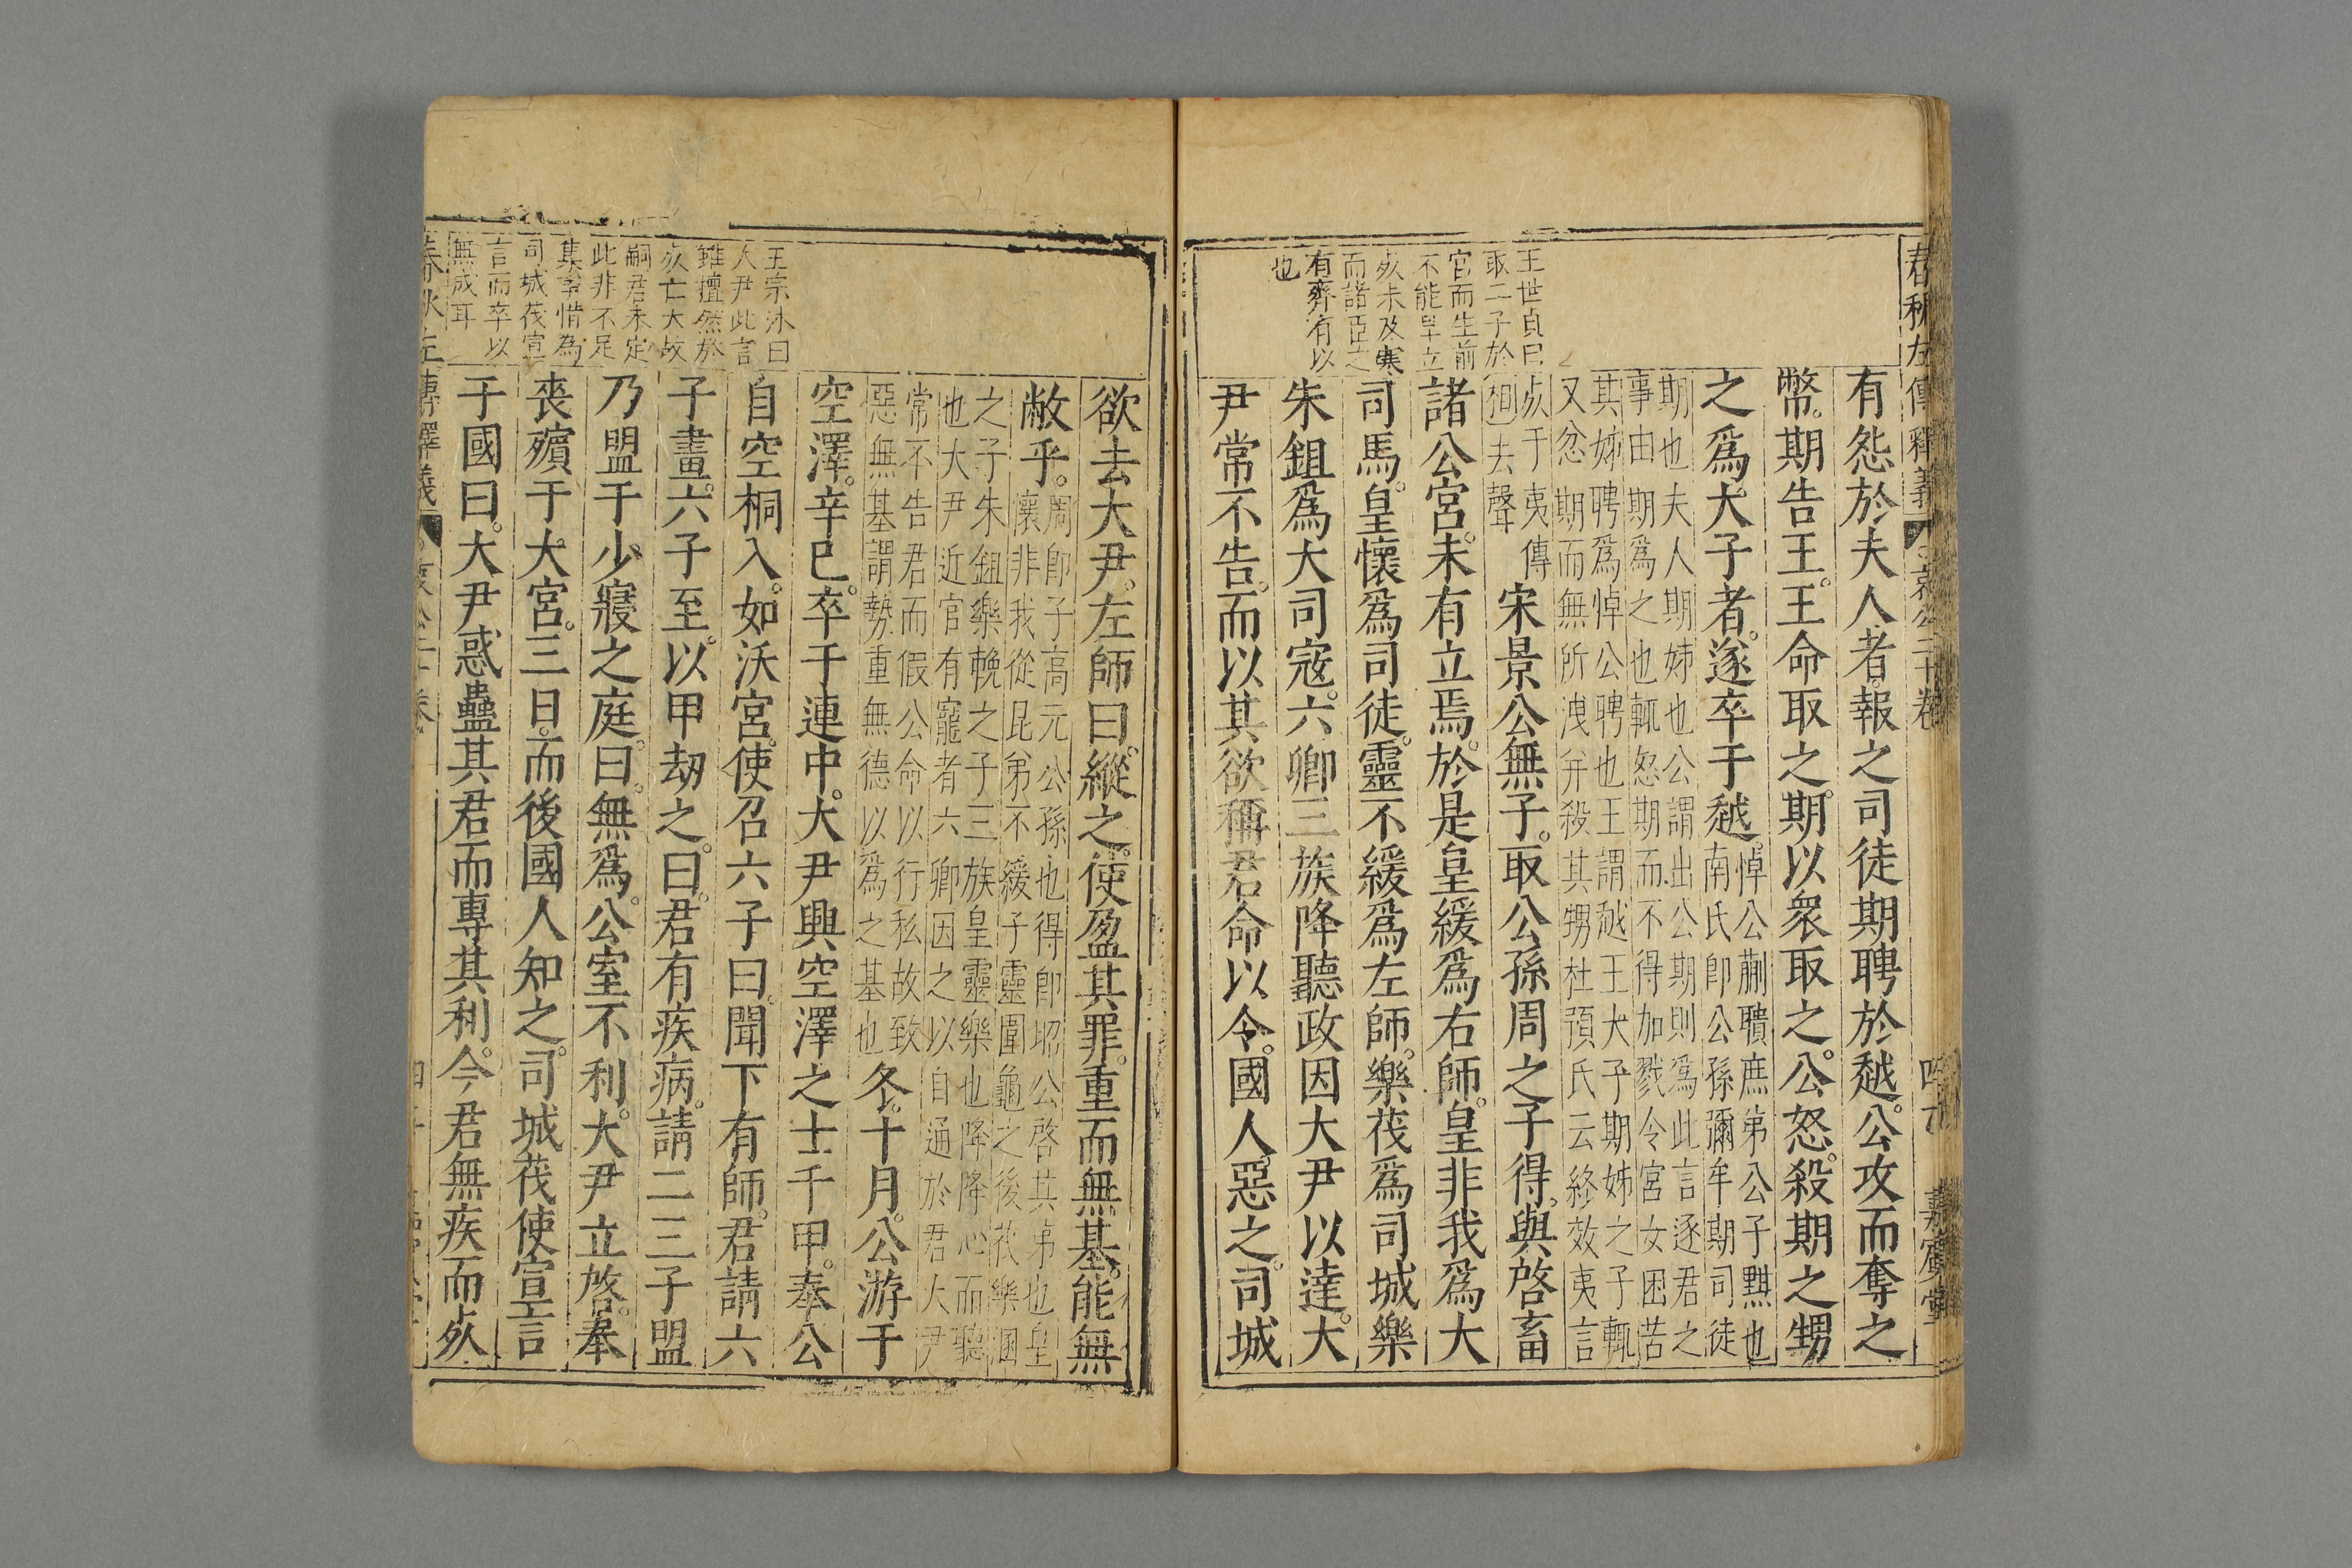 春秋左傳釋義 哀公二十卷 嘉賓堂
王世貞曰
取二子於
官而生前
不能早立
歿未及寒
而諸臣之
有弈有以
也
有怨於夫人者。報之司徒期聘於越。公攻而奪之
幣。期告王。王命取之。期以衆取之。公怒。殺期之甥
之爲大子者。遂卒于越。
悼公蒯聵庶弟公子黚也
南氏即公孫彌牟期司徒
期也夫人期姊也公謂出公期則爲此言逐君之
事由期爲之也輒怒期而不得加戮令宮女困苦
其姊聘爲悼公聘也王謂越王大子期姊之子輒
又忿期而無所洩弁殺其甥杜預氏云終效夷言
歿于夷傳
徇去聲
宋景公無子。取公孫周之子得。與啓畜
諸公宮。未有立焉。於是皇緩爲右師。皇非我爲大
司馬。皇懷爲司徒。靈不緩爲左師。樂茷爲司城樂
朱鉏爲大司寇。六卿三族降聽政因大尹以達。大
尹常不告。而以其欲稱君命以令。國人惡之。司城
欲去大尹。左師曰。縱之。使盈其罪。重而無基。能無
敝乎。
周卽子高元公孫也得卽昭公啓其弟也皇
懷非我從昆弟不緩子靈圍龜之後茷樂溷
之子朱鉏樂輓之子三族皇靈樂也降降心而聽
也大尹近官有寵者六卿因之以自通於君大尹
常不告君而假公命以行私故致
惡無基謂勢重無德以爲之基也
冬。十月。公游于
空澤。辛巳。卒于連中。大尹興空澤之士千甲。奉公
自空桐入。如沃宮。使召六子曰。聞下有師。君請六
子畫。六子至。以甲劫之。曰。君有疾病。請二三子盟
乃盟于少寢之庭。曰。無爲。公室不利。大尹立啓。奉
喪殯于大宮。三日。而後國人知之。司城茷使宣言
于國曰。大尹惑蠱其君。而專其利。今君無疾而歿
王宗沐曰
大尹此言
雖擅然於
歿亡大故
嗣君未定
此非不足
集事惜爲
司城茷宣
言而卒以
無成耳